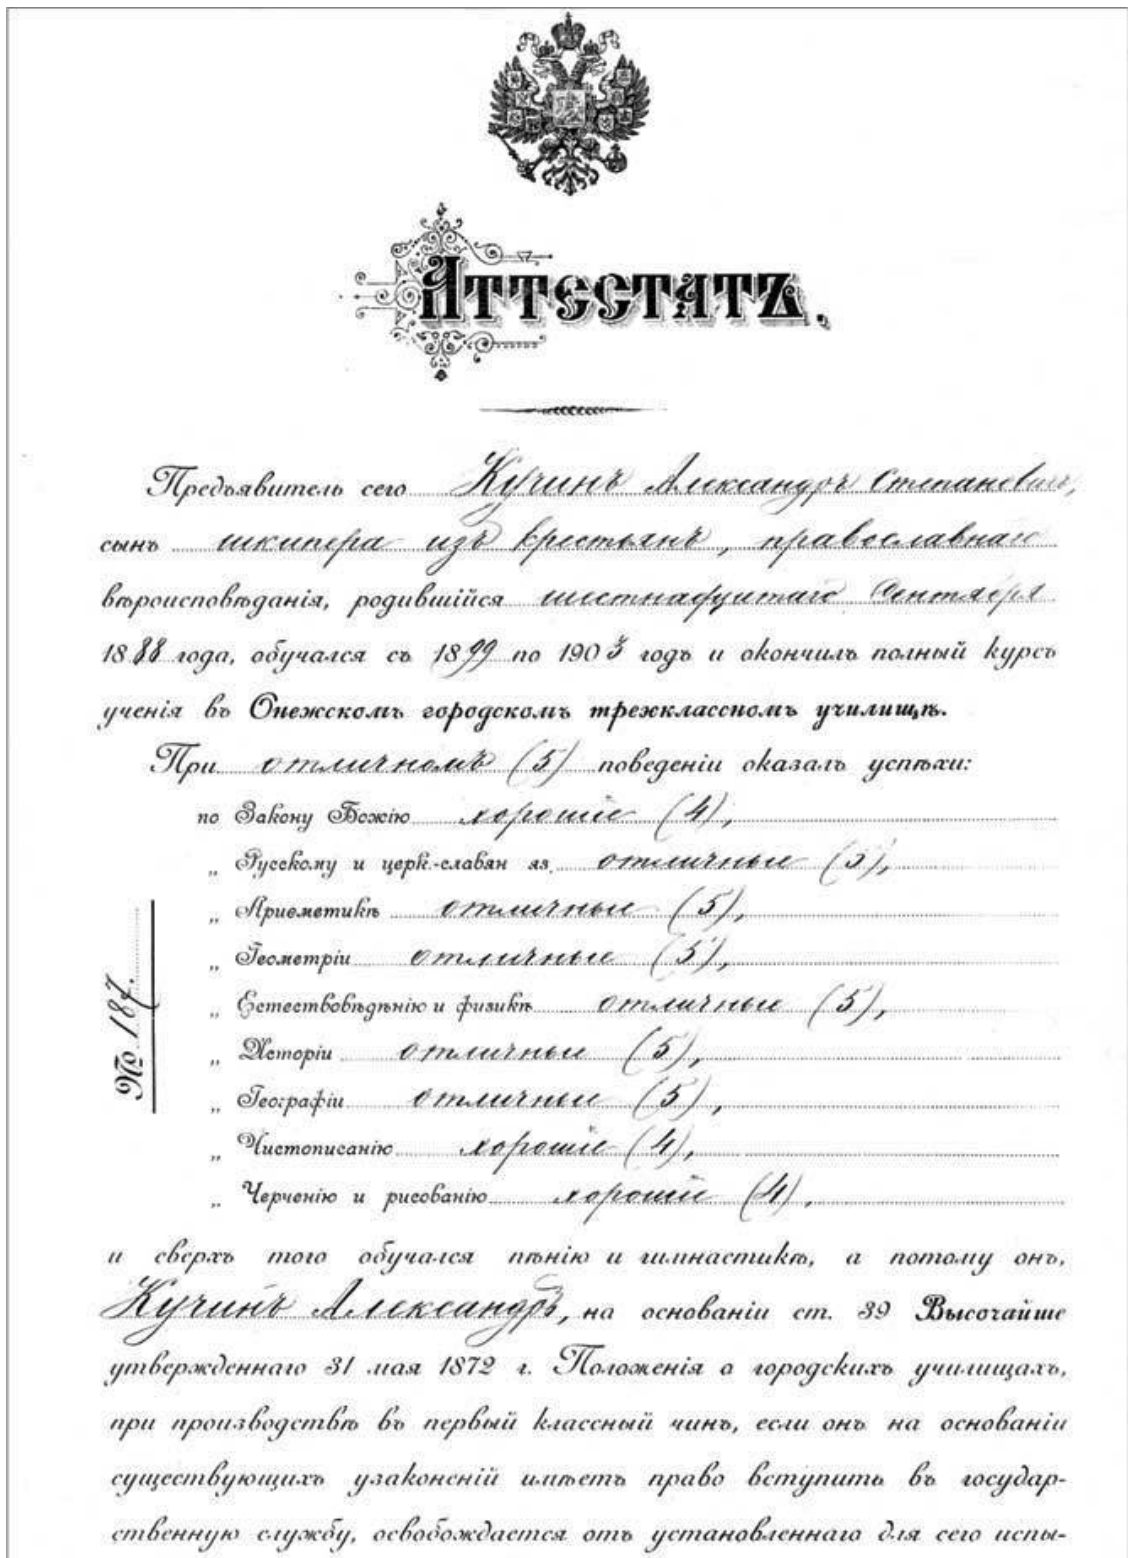 Аттестатъ.
Предъявитель сего Кучинъ Александръ Степановичъ,
сынъ шкипера изъ крестьянъ, православнаго
вѣроисповѣданія, родившійся шестнадцатаго Сентября
1888 года, обучался съ 1899 по 1903 годъ и окончилъ полный курсъ
ученія въ Онежскомъ городскомъ трехклассномъ училищѣ.
При отличномъ (5) поведеніи оказалъ успѣхи:
по Закону Божію хорошіе (4),
„ Русскому и церк.-славян яз. отличные (5),
„ Ариѳметикѣ отличные (5),
„ Геометріи отличные (5),
„ Естествовѣдѣнію и физикѣ отличные (5),
„ Исторіи отличные (5),
„ Географіи отличные (5),
„ Чистописанію хорошіе (4),
„ Черченію и рисованію хорошіе (4),
№ 187.
и сверхъ того обучался пѣнію и гимнастикѣ, а потому онъ,
Кучинъ Александръ, на основаніи ст. 39 Высочайше
утвержденнаго 31 мая 1872 г. Положенія о городскихъ училищахъ,
при производствѣ въ первый классный чинъ, если онъ на основаніи
существующихъ узаконеній имѣетъ право вступить въ государ-
ственную службу, освобождается отъ установленнаго для сего испы-